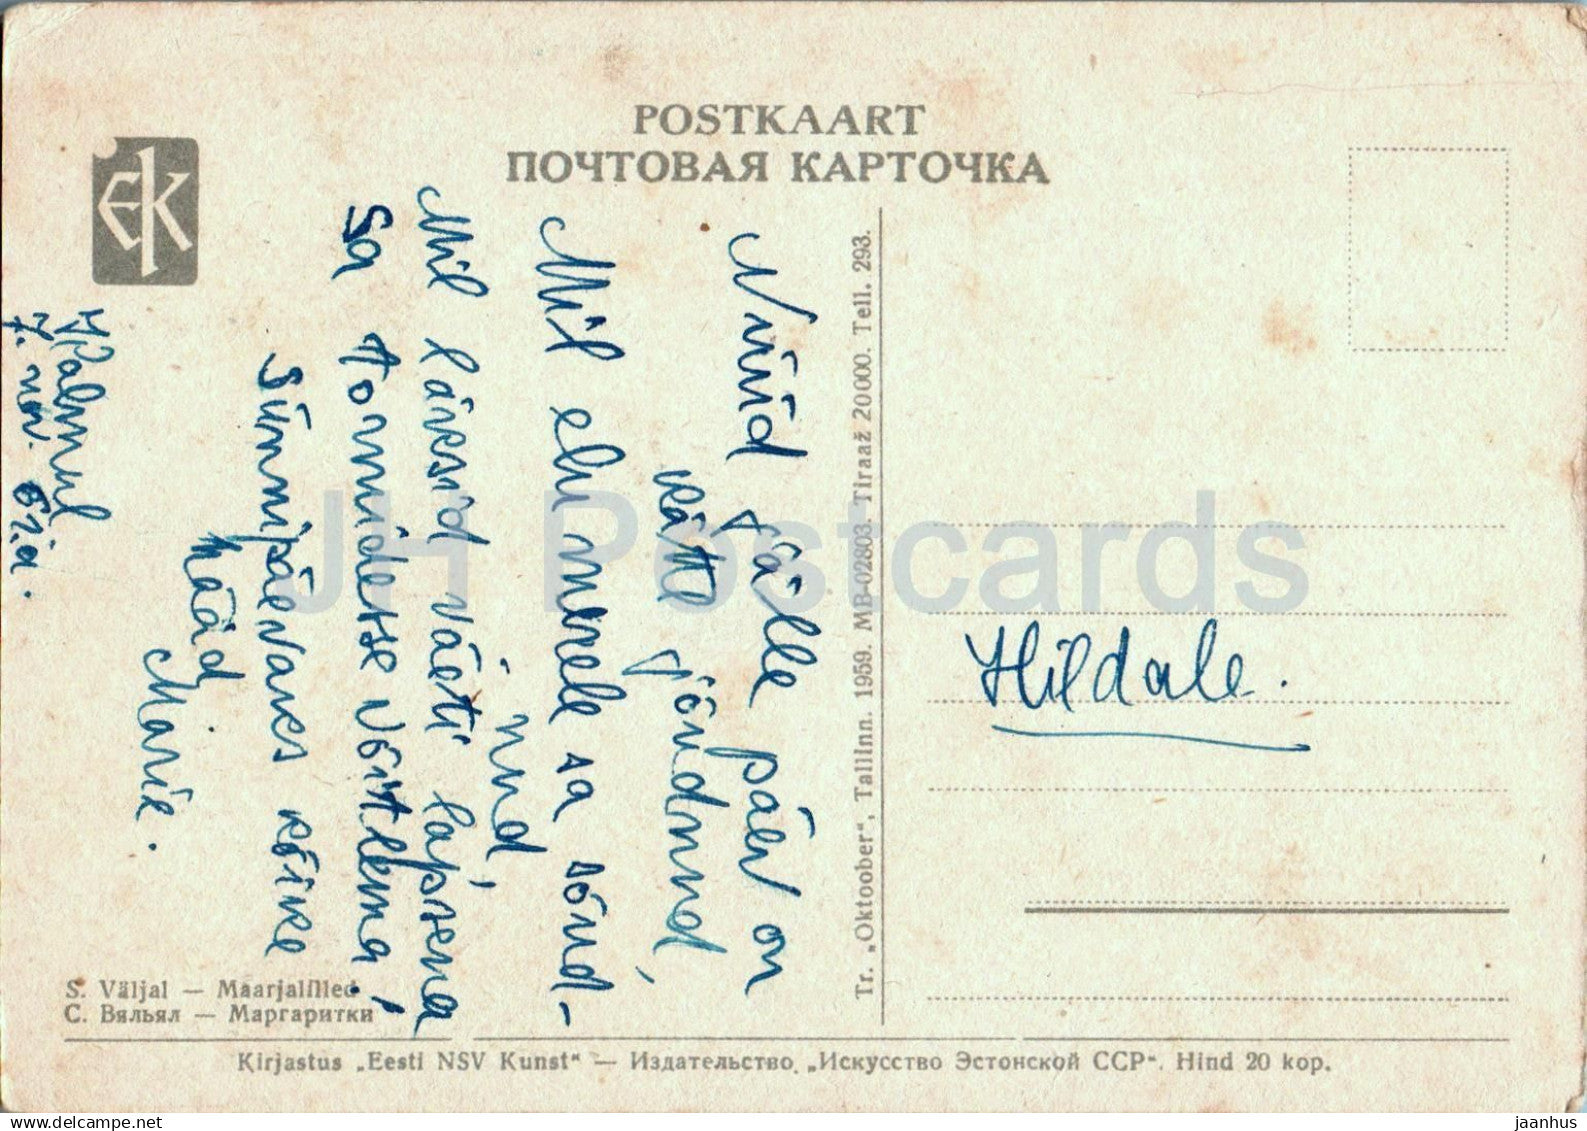 POSTKAART
ПОЧТОВАЯ КАРТОЧКА
EK
Nüüd jälle päev on
kätte jõudnud,
Mil elu merele sa sõud-
nud,
Mil läksid väeti lapsena
Sa tormidesse võitlema!
Sünnipäevaks kõike
hääd
Marie.
7. nov. 61a.
Hildale.
Tr. „Oktoober“, Tallinn. 1959. MB-02803. Tiraaž 20000. Tell. 293.
S. Väljal — Maarjalilled
С. Вяльял — Маргаритки
Kirjastus „Eesti NSV Kunst“ — Издательство „Искусство Эстонской ССР“. Hind 20 kop.
JH Postcards
jaanhus